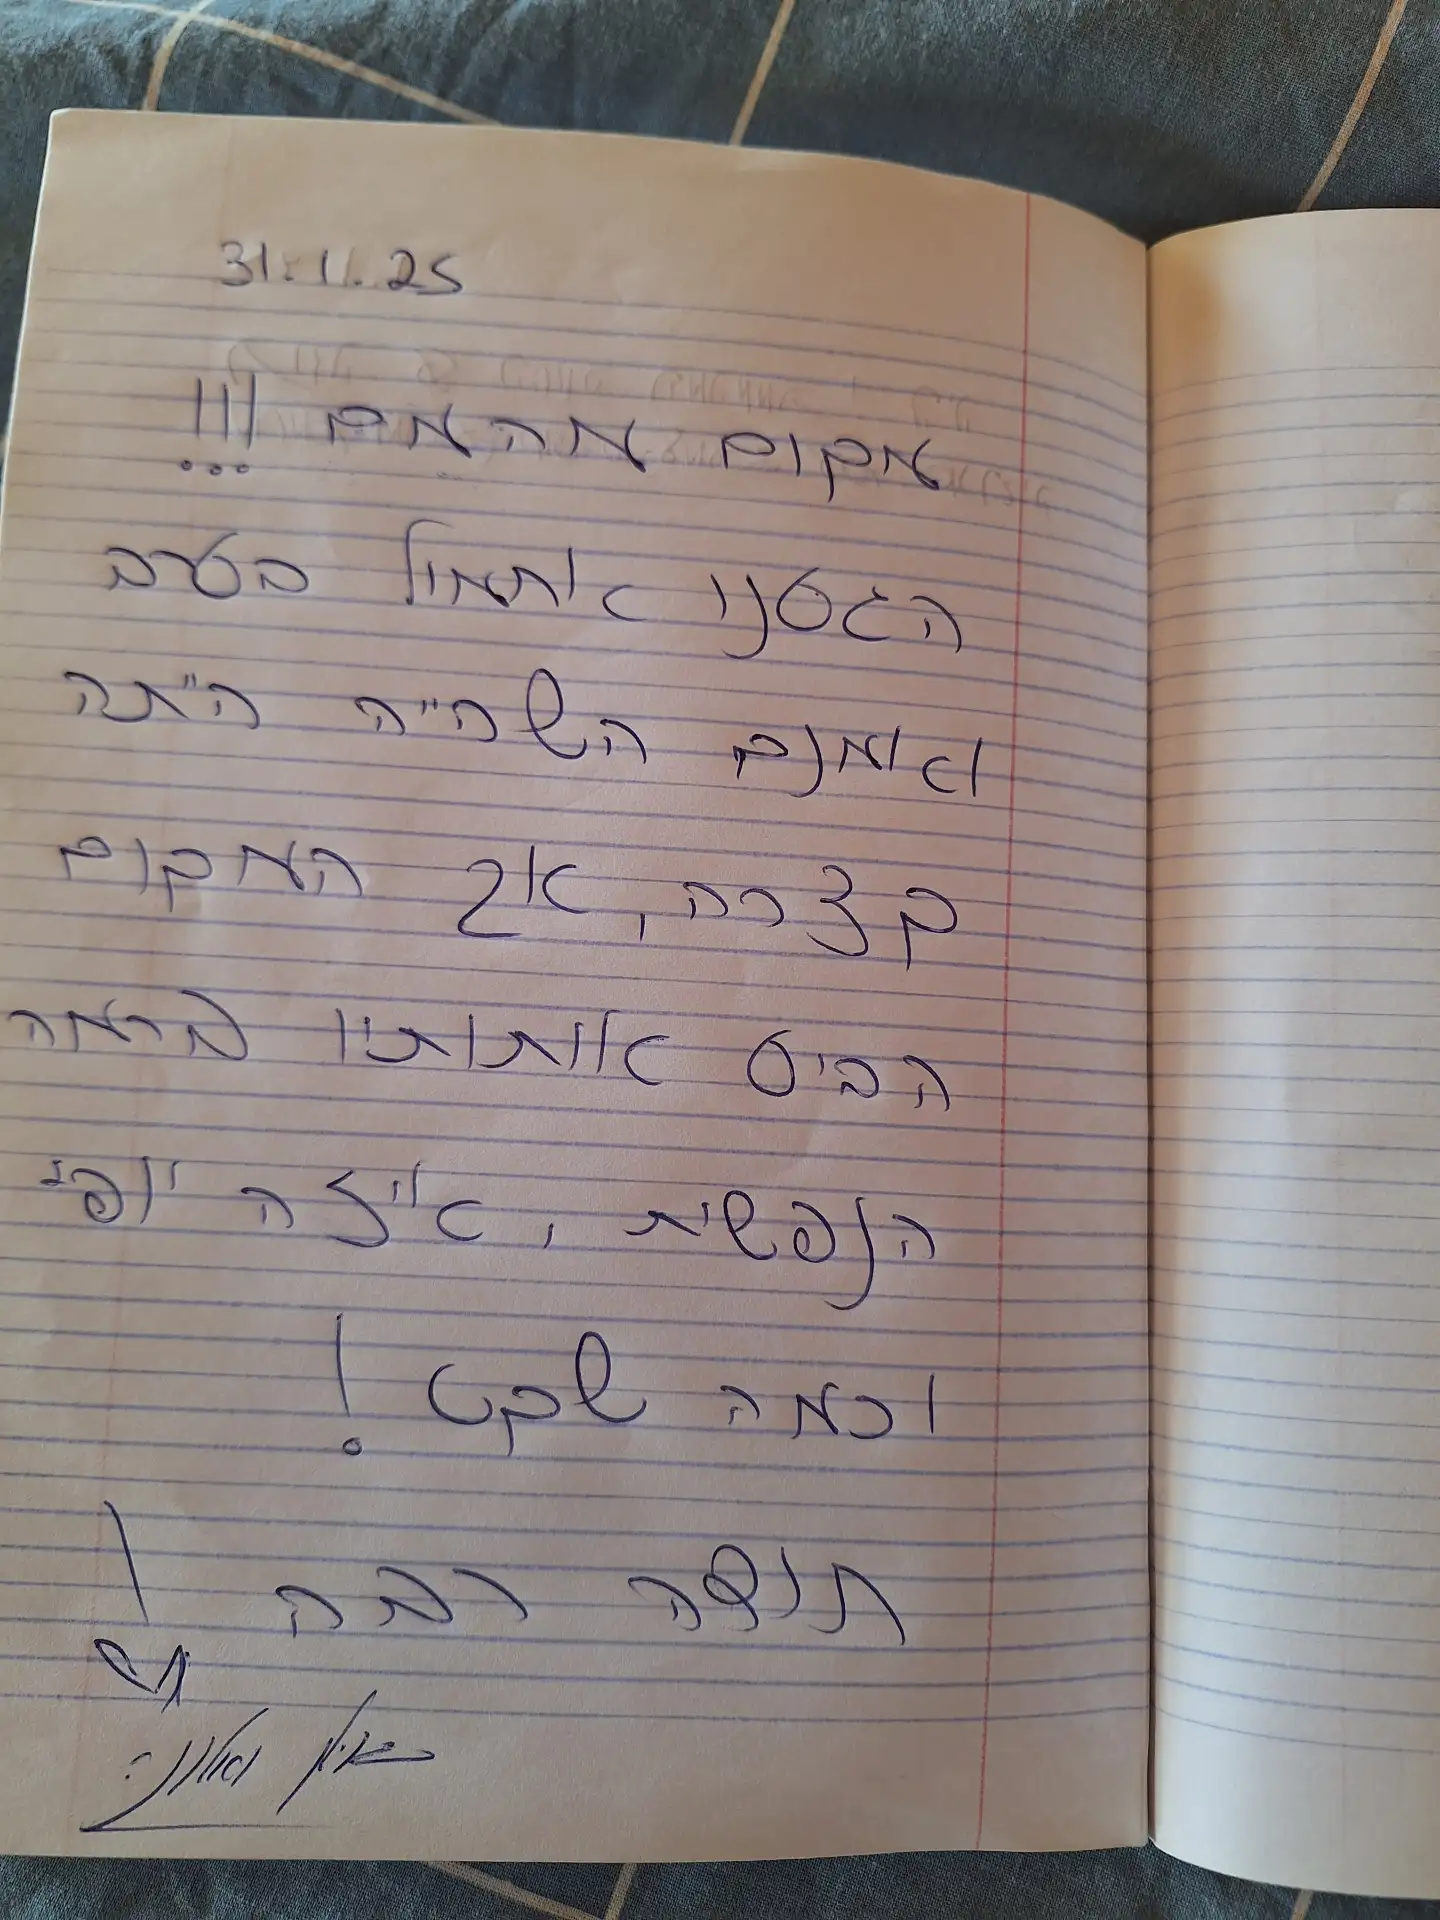 31.1.25
מקום מהמם !!!
הגענו אתמול בערב
ואומנם השהייה הייתה
קצרה, אך המקום
הביס אותותיו ברמה
הנפשית, איזה יופי
וכמה שקט!
תודה רבה !